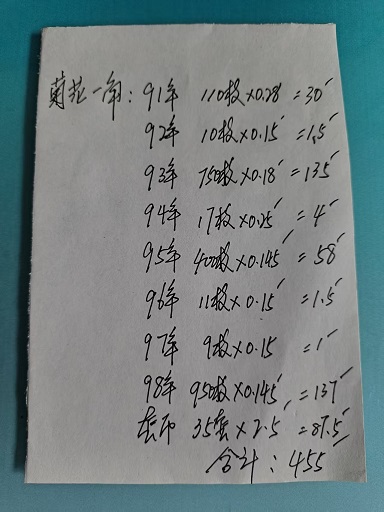 菊花一角：91年 110枚×0.28 =30
92年 10枚×0.15 =1.5
93年 750枚×0.18 =135
94年 17枚×0.25 =4
95年 400枚×0.145 =58
96年 11枚×0.15 =1.5
97年 9枚×0.15 =1
98年 950枚×0.145 =137
套币 35套×2.5 =87.5
合计：455